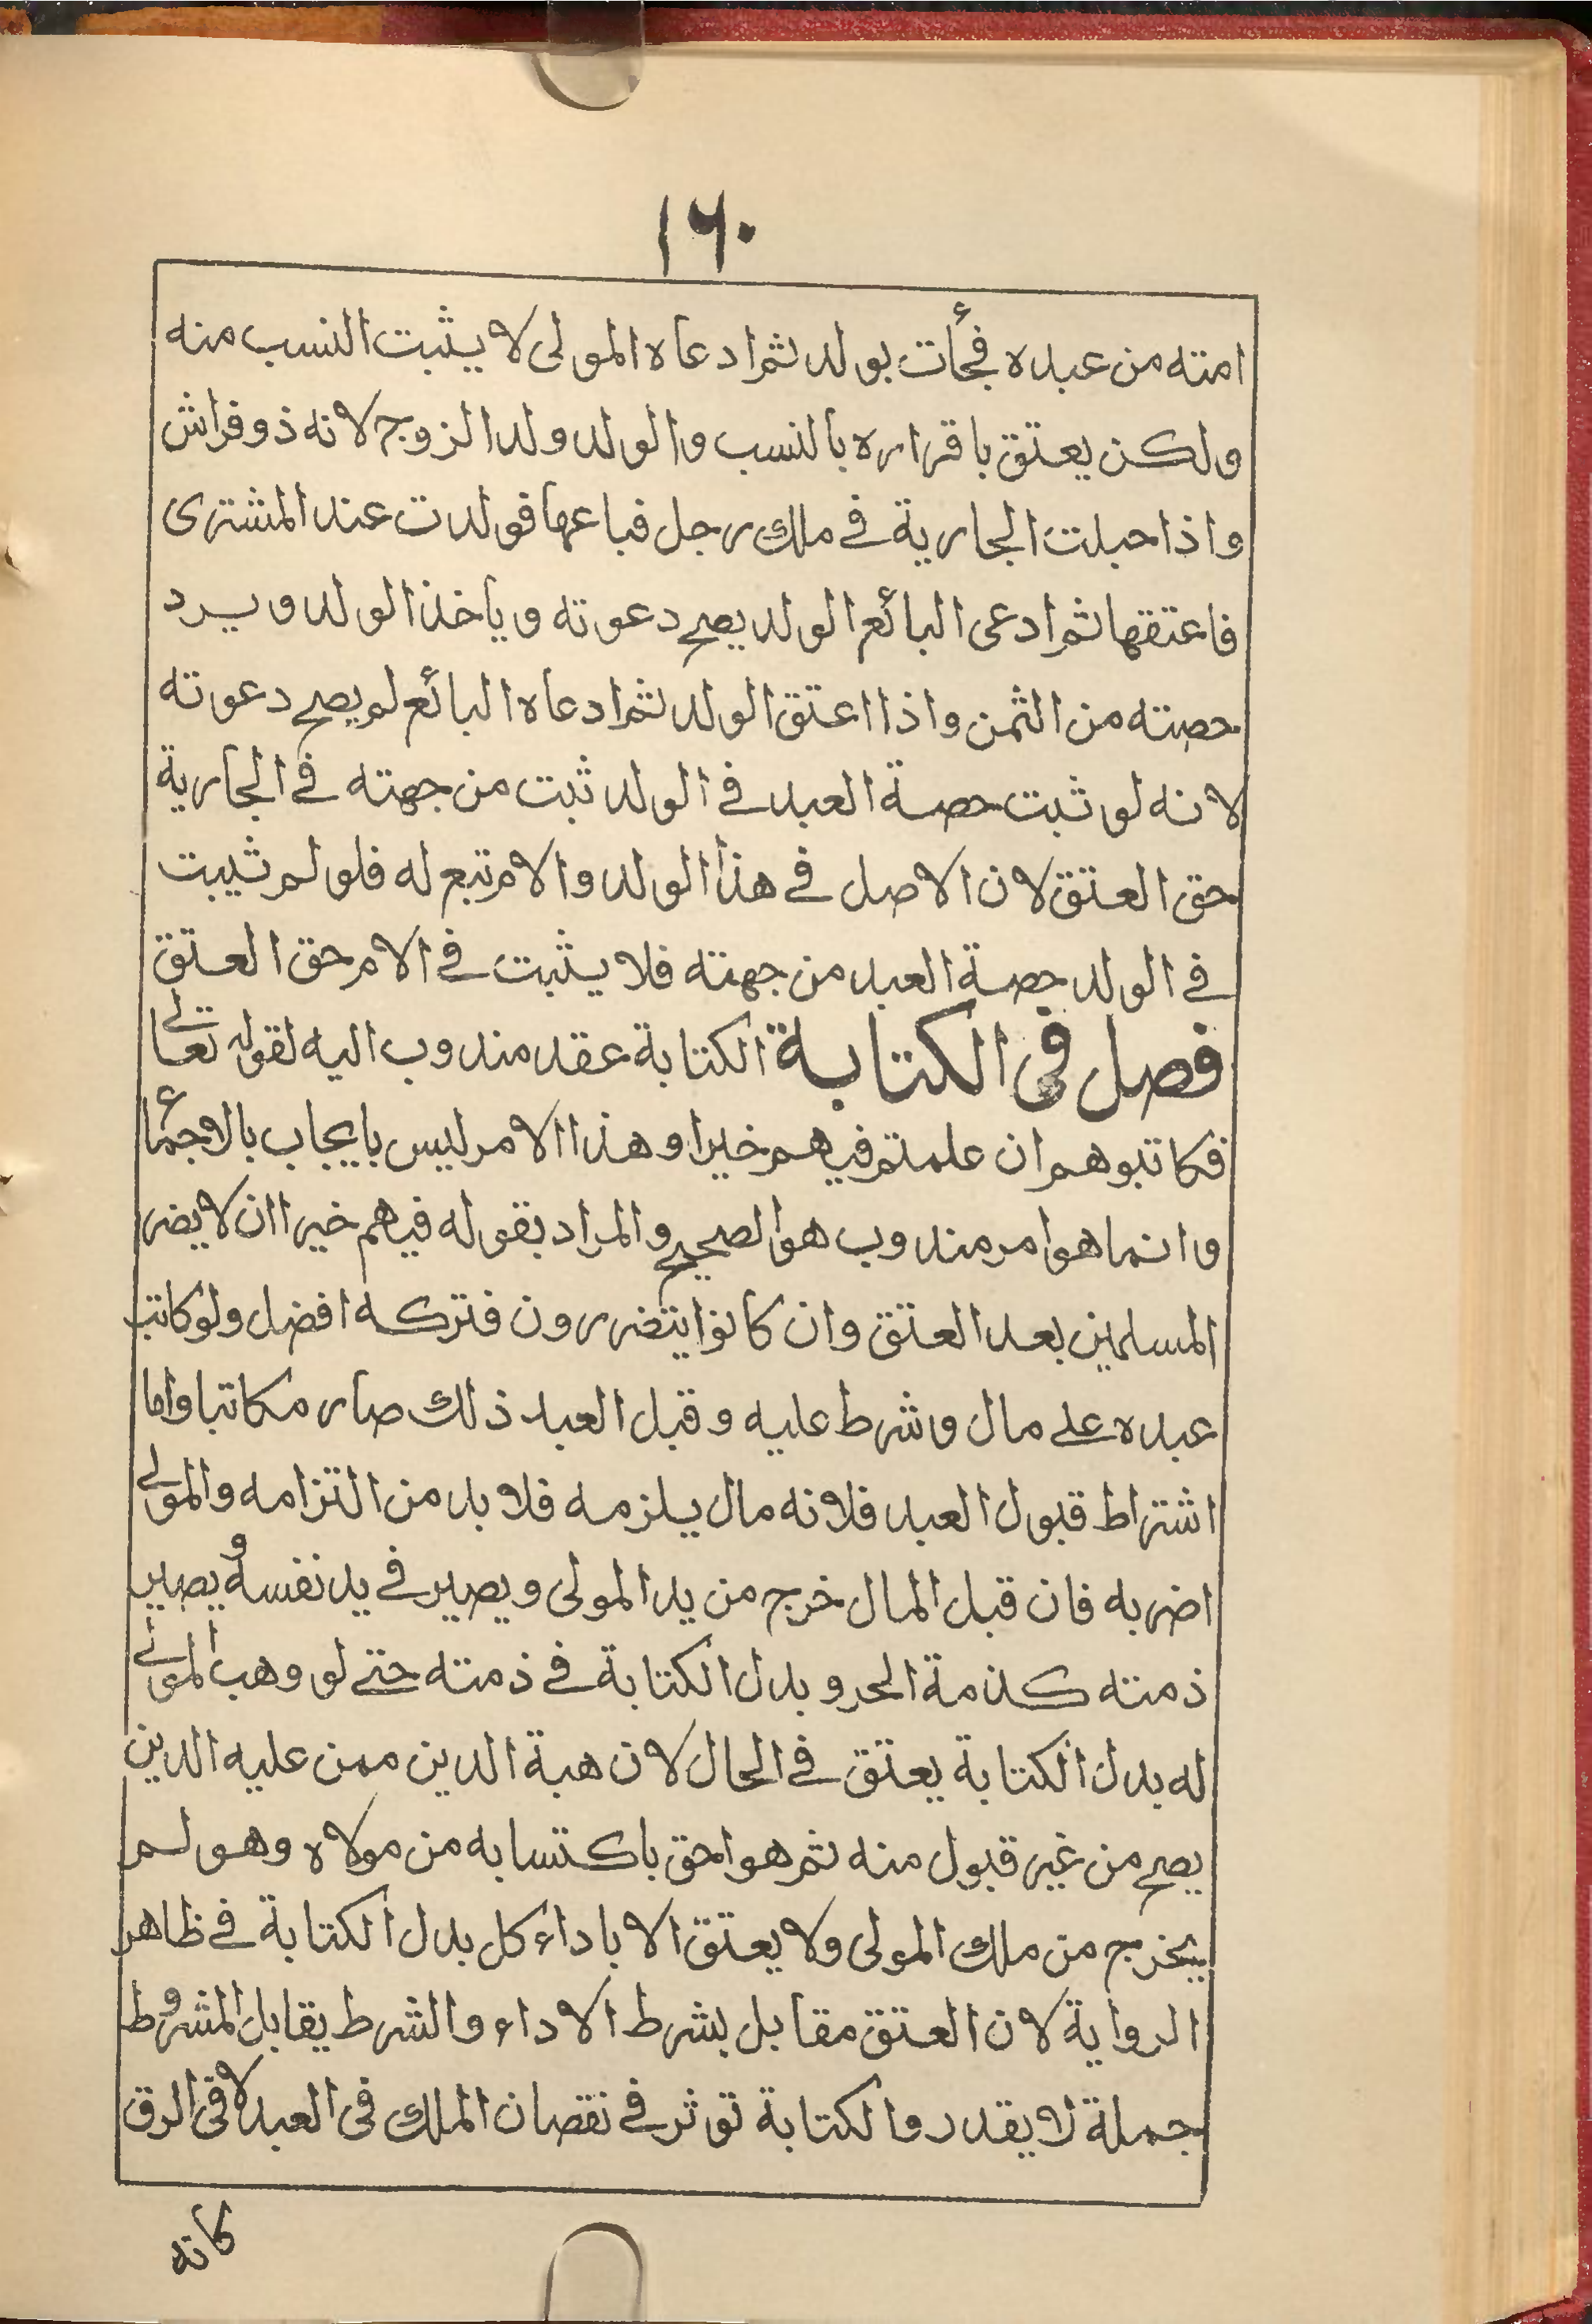 ١٦٠
امته من عبده فجأت بولد ثم ادعاه المولى لا يثبت النسب منه
ولكن يعتق باقراره بالنسب والولد ولد الزوج لانه ذو فراش
واذا حبلت الجارية في ملك رجل فباعها فولدت عند المشترى
فاعتقها ثم ادعى البائع الولد يصح دعوته وياخذ الولد ويرد
حصته من الثمن واذا اعتق الولد ثم ادعاه البائع لم يصح دعوته
لانه لو ثبت حصة العبد في الولد ثبت من جهته في الجارية
حق العتق لان الاصل في هذا الولد والام تبع له فلو لم ثيبت
في الولد حصة العبد من جهته فلا يثبت في الام حق العتق
فصل فى الكتابة الكتابة عقد مندوب اليه لقوله تعالى
فكاتبوهم ان علمتم فيهم خيرا وهذا الامر ليس بايجاب بالاجماع
وانما هو امر مندوب هو الصحيح والمراد بقوله فيهم خيرا ان لا يضر
المسلمين بعد العتق وان كانوا يتضررون فتركه افضل ولو كاتب
عبده على مال وشرط عليه وقبل العبد ذلك صار مكاتبا واما
اشتراط قبول العبد فلانه مال يلزمه فلا بد من التزامه والمولى
اضر به فان قبل المال خرج من يد المولى ويصير في يد نفسه ويصير
ذمته كذمة الحر وبدل الكتابة في ذمته حتى لو وهب المولى
له بدل الكتابة يعتق في الحال لان هبة الدين ممن عليه الدين
يصح من غير قبول منه ثم هو احق باكتسابه من مولاه وهو لم
يخرج من ملك المولى ولا يعتق الا باداء كل بدل الكتابة في ظاهر
الرواية لان العتق مقابل بشرط الاداء والشرط يقابل المشروط
جملة لا يقدر والكتابة توثر في نقصان الملك فى العبد لا فى الرق
كانه